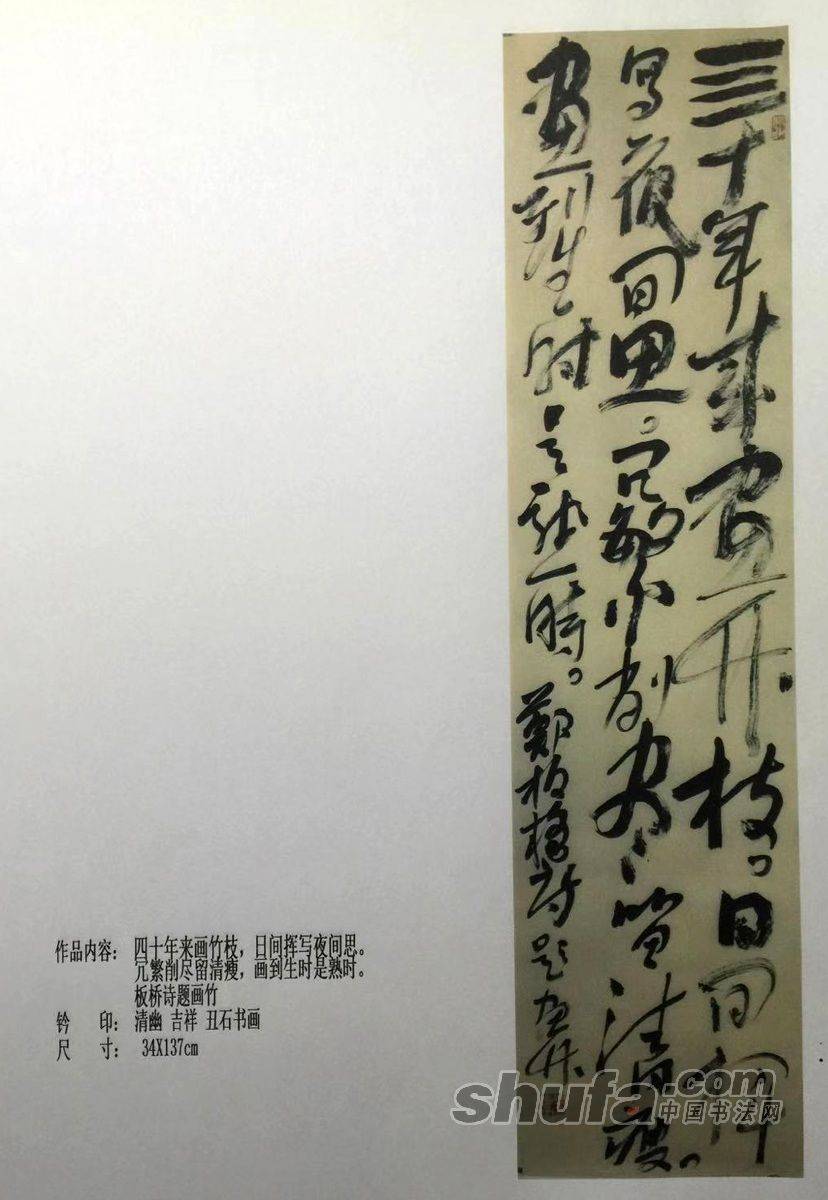 亖十年來畫竹枝。日间揮
寫夜间思。冗繁削尽留清瘦。
畫到生时是熟時。鄭板橋诗題画竹
作品内容: 四十年来画竹枝，日间挥写夜间思。
冗繁削尽留清瘦，画到生时是熟时。
板桥诗题画竹
钤 印: 清幽 吉祥 丑石书画
尺 寸: 34X137cm
shufa.com
中国书法网